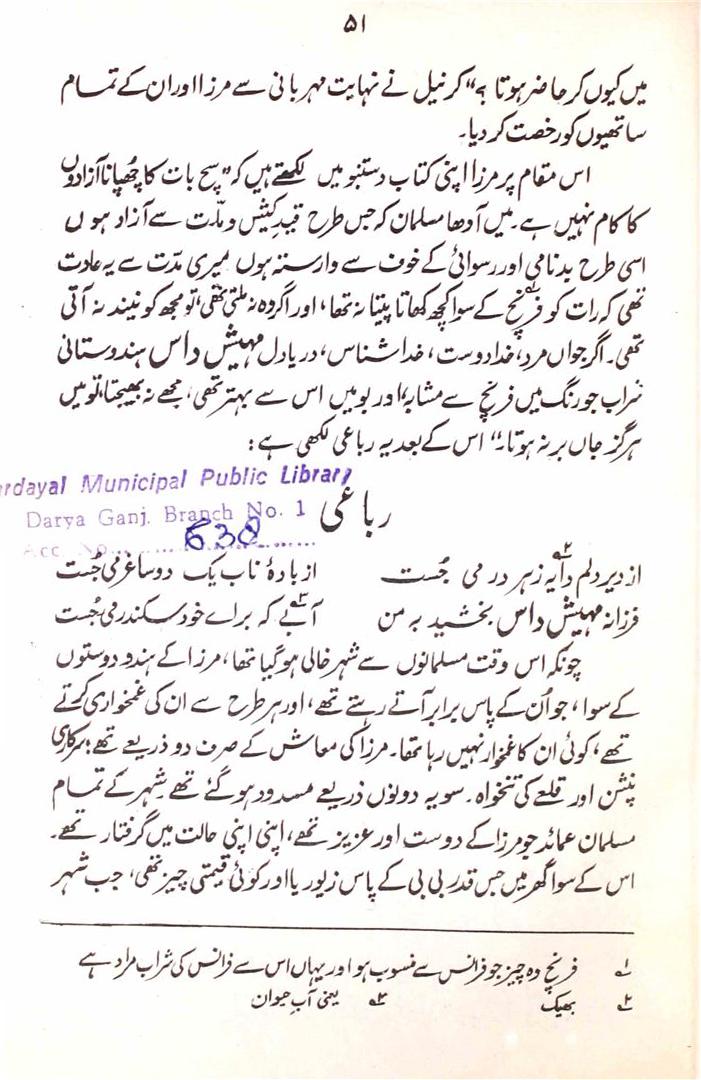 ۵۱
میں کیوں کر حاضر ہوتا ؟“ کرنیل نے نہایت مہربانی سے مرزا اور ان کے تمام
ساتھیوں کو رخصت کر دیا۔
اس مقام پر مرزا اپنی کتاب دستنبو میں لکھتے ہیں کہ ”سچ بات کا چُھپانا آزادوں
کا کام نہیں ہے۔ میں آدھا مسلمان کہ جس طرح قیدِ کیش و ملّت سے آزاد ہوں
اسی طرح بدنامی اور رسوائی کے خوف سے وارستہ ہوں میری مدّت سے یہ عادت
تھی کہ رات کو فرنچ۱ کے سوا کچھ کھاتا پیتا نہ تھا، اور اگر وہ نہ ملتی تھی، تو مجھ کو نیند نہ آتی
تھی۔ اگر جواں مرد، خدا دوست، خدا شناس، دریا دل مہیش داس ہندوستانی
شراب جو رنگ میں فرنچ سے مشابہ، اور بو میں اس سے بہتر تھی، مجھے نہ بھیجتا، تو میں
ہرگز جاں بر نہ ہوتا۔“ اس کے بعد یہ رباعی لکھی ہے:
rdayal Municipal Public Library
Darya Ganj. Branch No. 1
Acc. No. 638
رباعی
از دیر دلم دایہ۲ زہر در می جُست از بادۂ ناب یک دو ساغر می جُست
فرزانہ مہیش داس بخشید بہ من آبے۳ کہ براے خود سکندر می جُست
چونکہ اس وقت مسلمانوں سے شہر خالی ہو گیا تھا، مرزا کے ہندو دوستوں
کے سوا، جو اُن کے پاس برابر آتے رہتے تھے، اور ہر طرح سے ان کی غمخواری کرتے
تھے، کوئی ان کا غمخوار نہیں رہا تھا۔ مرزا کی معاش کے صرف دو ذریعے تھے؛ سرکاری
پنشن اور قلعے کی تنخواہ۔ سو یہ دونوں ذریعے مسدود ہو گئے تھے۔ شہر کے تمام
مسلمان عمائد جو مرزا کے دوست اور عزیز تھے، اپنی اپنی حالت میں گرفتار تھے۔
اس کے سوا گھر میں جس قدر بی بی کے پاس زیور یا اور کوئی قیمتی چیز تھی، جب شہر
۱ فرنچ وہ چیز جو فرانس سے منسوب ہو اور یہاں اس سے فرانس کی شراب مراد ہے
۲ بھیک ۳ یعنی آبِ حیوان